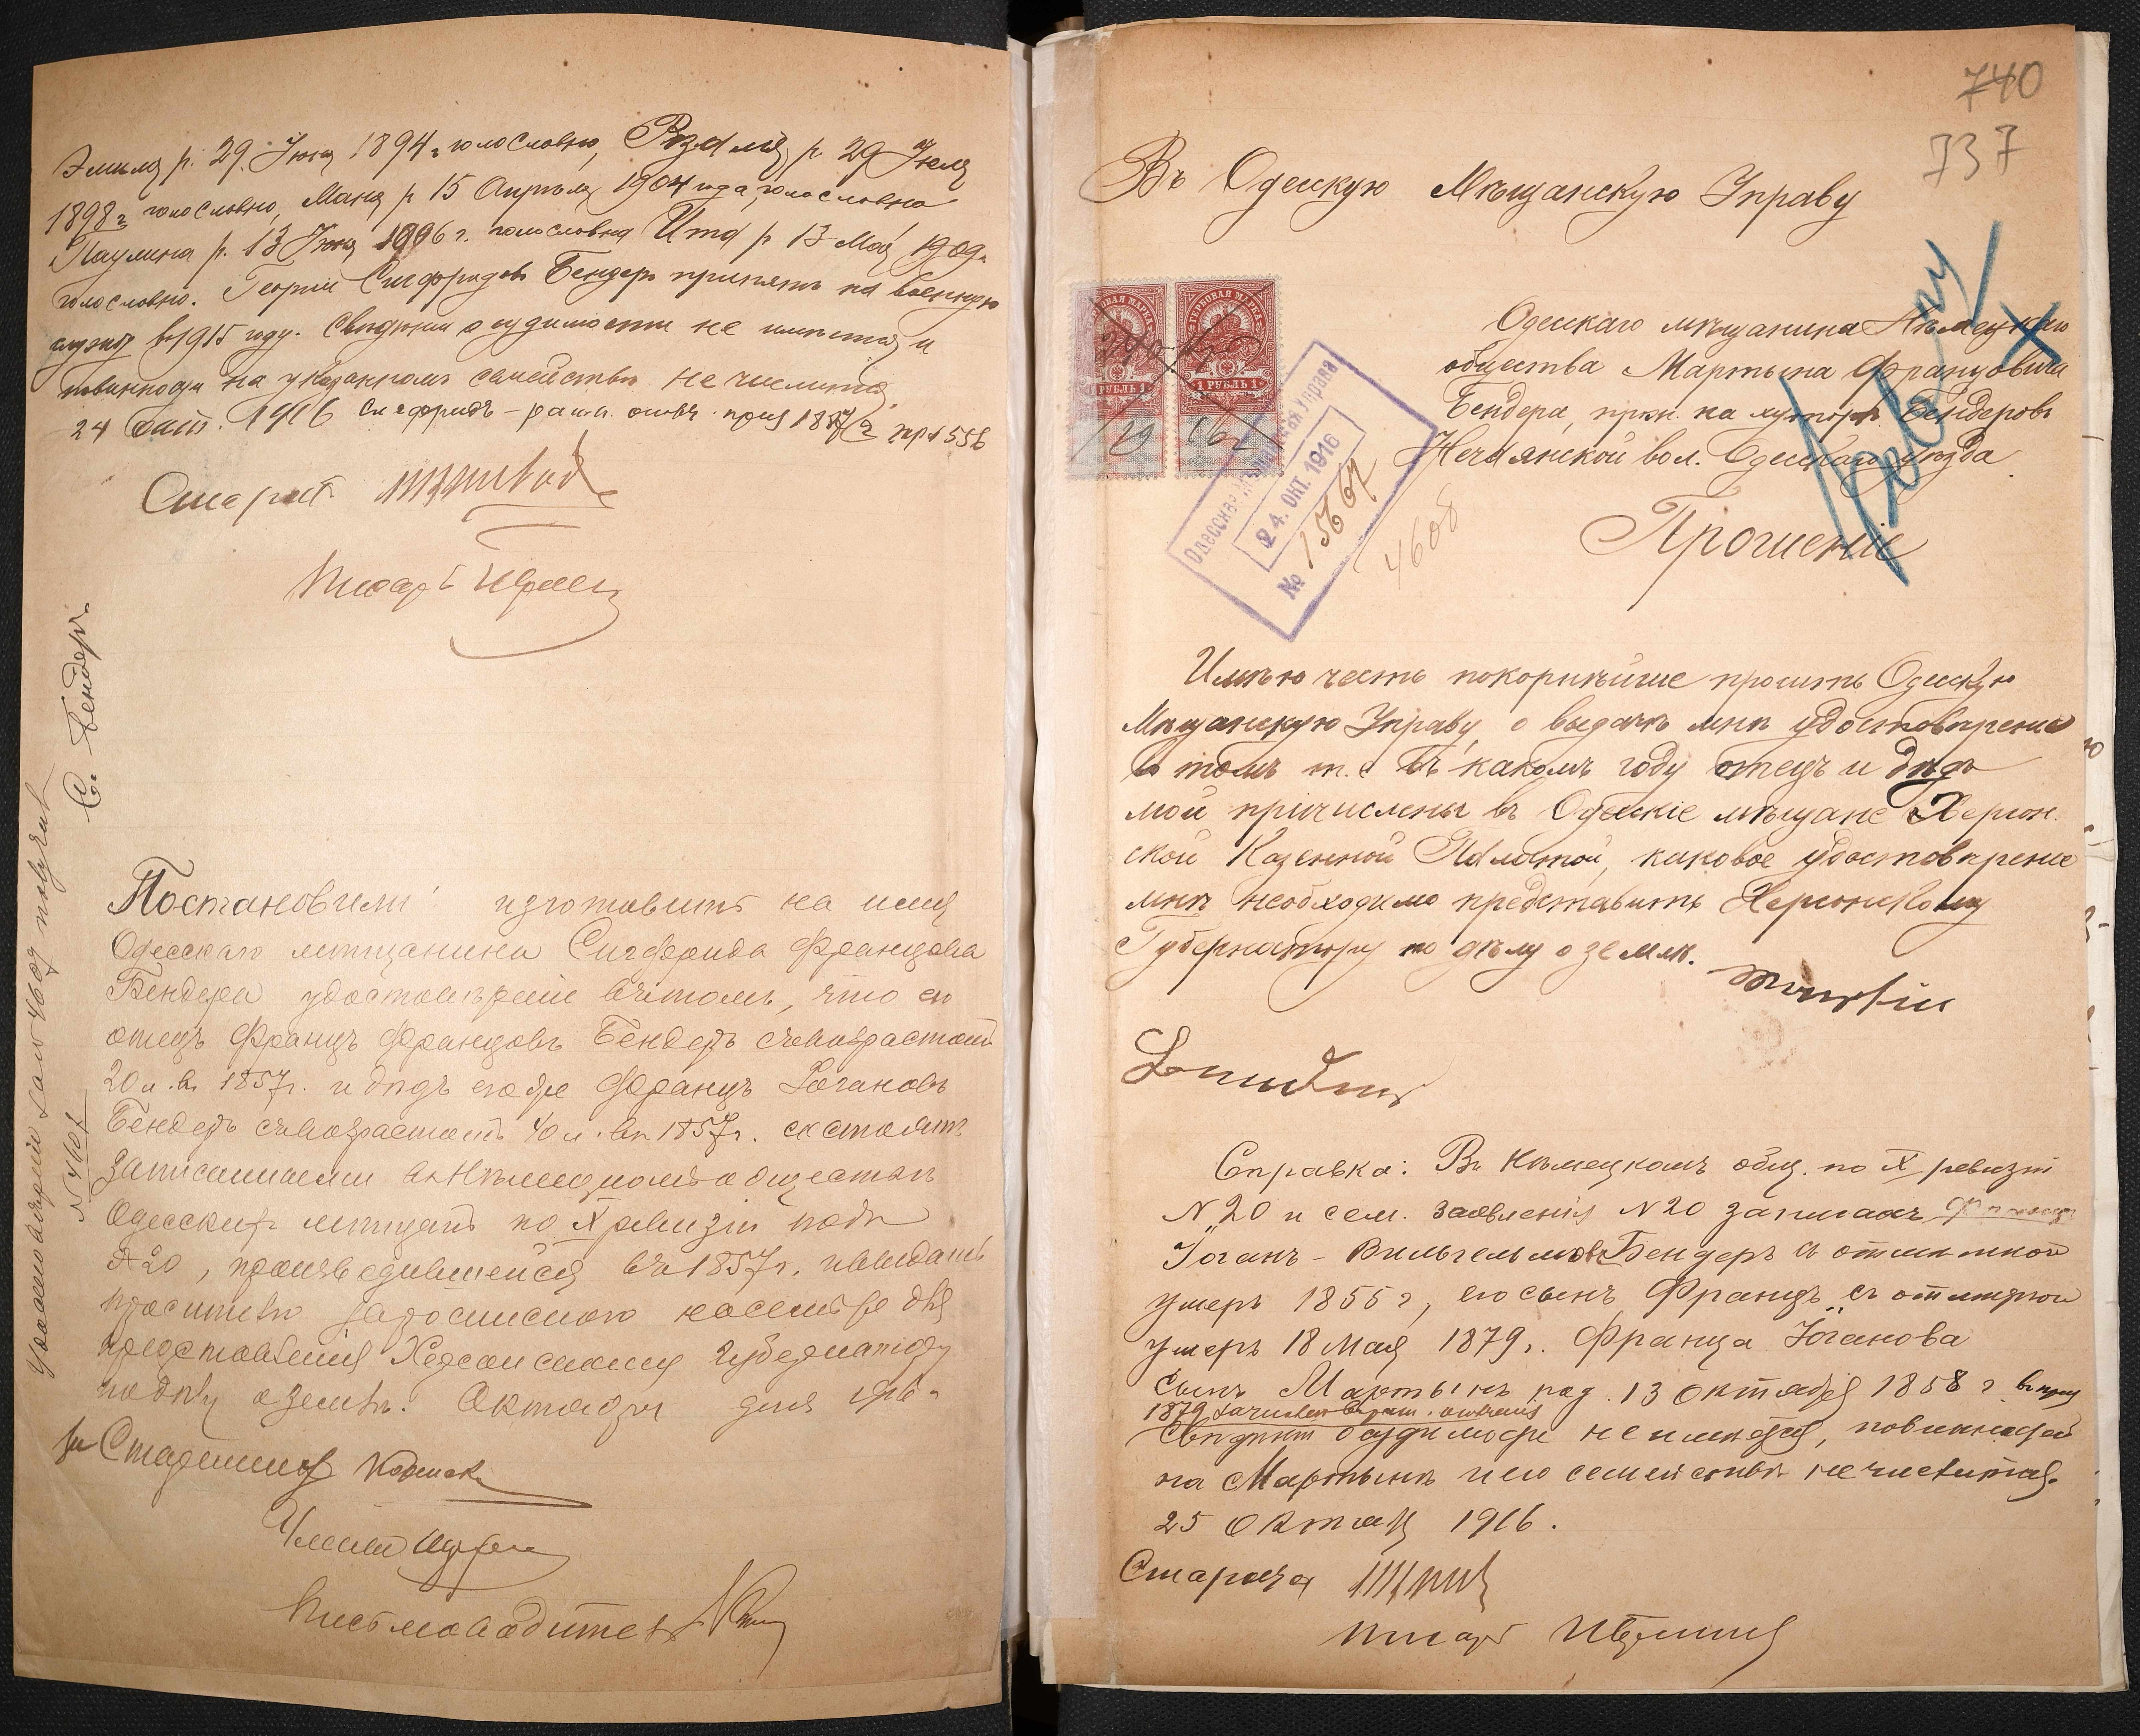 Эмилія р. 29 Іюня 1894 г. голословно, Розалія р. 29 Іюля
1898 г. голословно, Марія р. 15 Апрѣля 1904 года, голословно
Паулина р. 13 Іюня 1906 г. голословно Ита р 13 Мая 1909 г.
голословно. Георгій Сигфридовъ Бендеръ принятъ на военную
службу въ 1915 году. Свѣдѣній о судимости не имѣется и
повинностей на указанномъ семействѣ не числится.
24 Окт. 1916 Сигфридъ
Старост.
Писарь
С. Бендеръ
Удостовѣреніе за № 4609 получилъ
№ 4601
Постановили: изготовить на имя
Одесскаго мѣщанина Сигфрида Францова
Бендера удостовѣреніе въ томъ, что его
отецъ Францъ Францовъ Бендеръ съ возрастомъ
20 л. въ 1857 г. и дѣдъ его же Францъ Югановъ
Бендеръ съ возрастомъ 40 л. въ 1857 г. состоятъ
записанными въ Нѣмецкомъ обществѣ
Одесскихъ мѣщанъ по X ревизіи подъ
№ 20, производившейся въ 1857 г. и выдать
просителю для
представленія Херсонскому Губернатору
по дѣлу о землѣ. Октября дня 1916 г.
за Старшины
Членъ
Письмоводитель
740
737
Въ Одесскую Мѣщанскую Управу
ГЕРБОВАЯ МАРКА
ГЕРБОВАЯ МАРКА
РУБЛЬ 1
1 РУБЛЬ 1
19 16 г
Одесскаго мѣщанина Нѣмецкаго
общества Мартына Францовича
Бендера, прож. на хуторѣ Бендеровъ
Нечаянской вол. Одесскаго уѣзда
Одесская Мѣщанская Управа
24. ОКТ. 1916
№ 15767
4608
Прошеніе
Имѣю честь покорнѣйше просить Одесскую
Мѣщанскую Управу о выдачѣ мнѣ удостовѣренія
въ томъ т. е въ какомъ году отецъ и дѣдъ
мой причислены въ Одесскіе мѣщане Херсон
ской Казенной Палатой, каковое удостовѣреніе
мнѣ необходимо представить Херсонскому
Губернатору по дѣлу о землѣ.
Martin
Bender
Справка: Въ Нѣмецкомъ общ. по X ревизіи
№ 20 и сем. заявленія № 20 записанъ
Юганъ - Вильгельмовъ Бендеръ съ отмѣткой
умеръ 1855 г, его сынъ Францъ съ отмѣткой
умеръ 18 Мая 1879 г. Франца Юганова
сынъ Мартынъ род. 13 Октября 1858 г.
1879
Свѣдѣній о судимости не имѣется, повинностей
на Мартынѣ и его семействѣ не числится.
25 Октября 1916.
Староста
Писарь